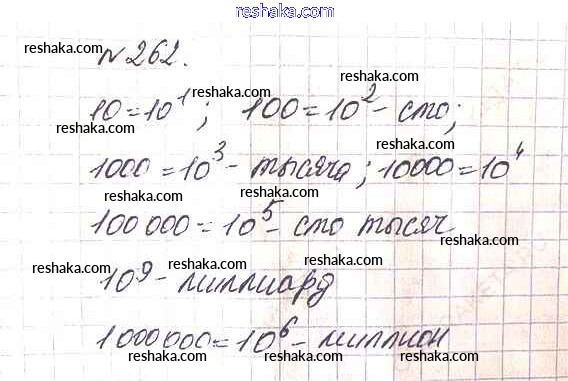 www.reshaka.com
reshaka.com reshaka.com
№262.
reshaka.com
10=10¹; 100=10²- сто;
reshaka.com reshaka.com
1000=10³- тысяча; 10000=10⁴
reshaka.com reshaka.com
100 000=10⁵- сто тысяч
reshaka.com reshaka.com reshaka.com
10⁹- миллиард
reshaka.com reshaka.com
1000 000=10⁶- миллион
reshaka.com reshaka.com